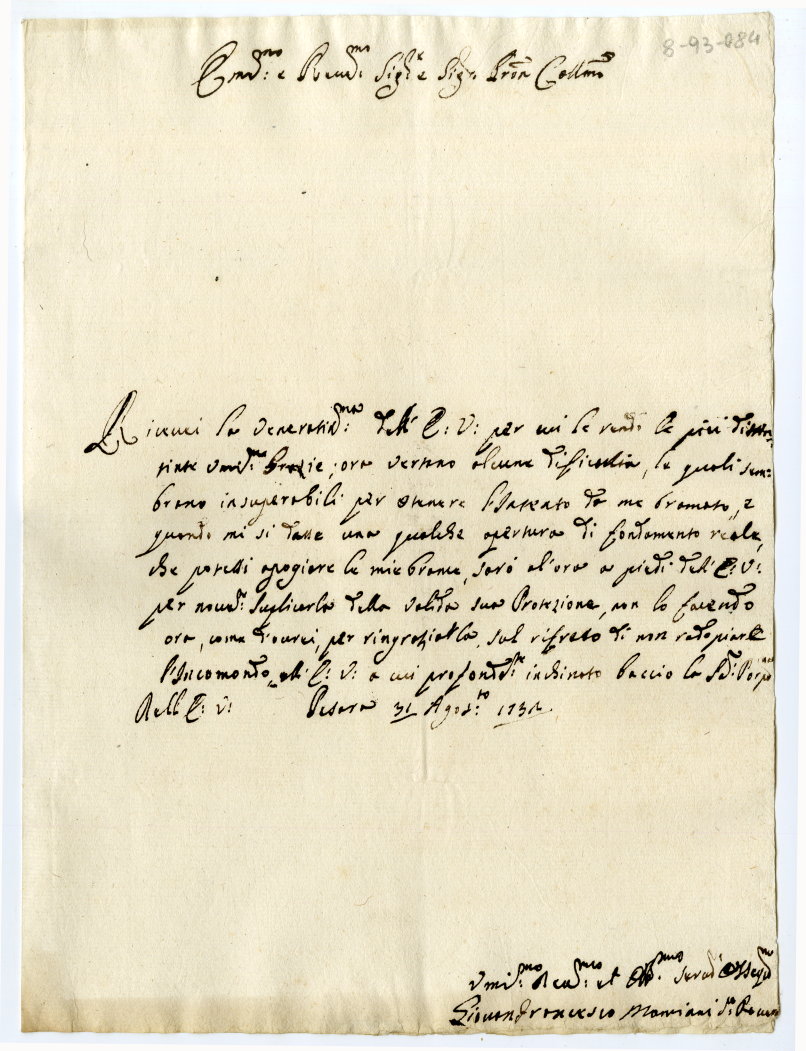 8-93-084
Em.mo e Rev.mo Sig.r e Sig.r Pron Collmo
Riceuei la veneratis.ma dell' E: V: per cui le rendo le piu distin-
tinte umil.me grazie; ora vertano alcune dificultà, le quali sem=
brano insuperabili per otenere l'Intento da me bramato, e
quando mi si dasse una qualche apertura di fondamento reale,
che potessi apogiare le mie brame, sarò al'ora a piedi dell' E: V:
per suplicarla della valida sua Protezione, non lo facendo
ora, come dourei, per ringraziarla, sul rifleso di non radopiarle
l'Incomondo, all' E: V: a cui profond.te inchinato baccio la
Dell E: V: Pesaro 31 Agos.to
Umil.mo et seru.
Giouanfrancesco Mamiani